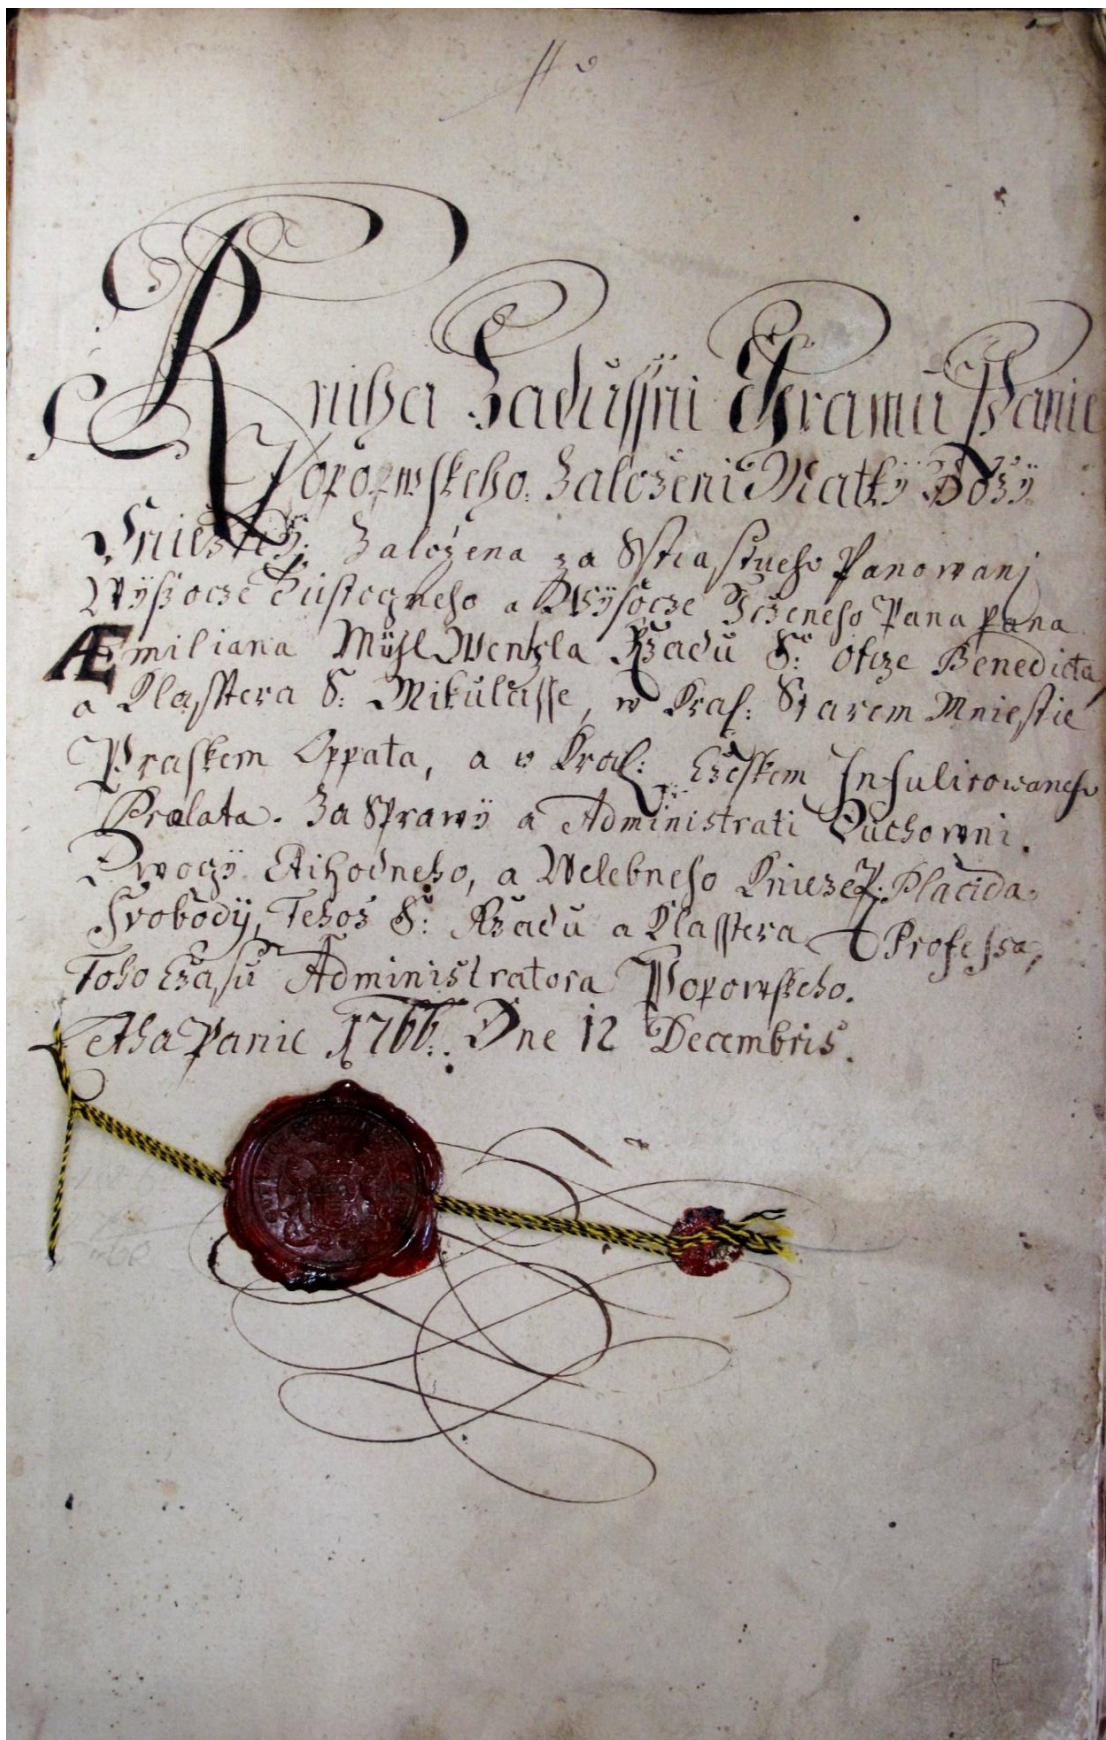 Kniha Zadussni Chramu Panie
Popowskeho. Založeni Matky Boži
Sniežné: Založena za Sstiastneho Panowani
Wysocze Dustogneho a Wysocze Vrozeneho Pana pana
Æmiliana Mühl Wenzla Ržadu S: otcze Benedicta,
a Klasstera S: Mikulasse, w Kral: Starem Mniestie
Praskem Oppata, a w Kral: Czeskem Infulirowaneho
Prælata. Za Sprawy a Administrati Duchowni.
Dwogy Ctihodneho, a Welebneho Knieze P: Placida
Svobody, Tehož S: Ržadu a Klasstera Professa,
Toho Czasu Administratora Popowskeho.
Letha Panie 1766. Dne 12 Decembris.